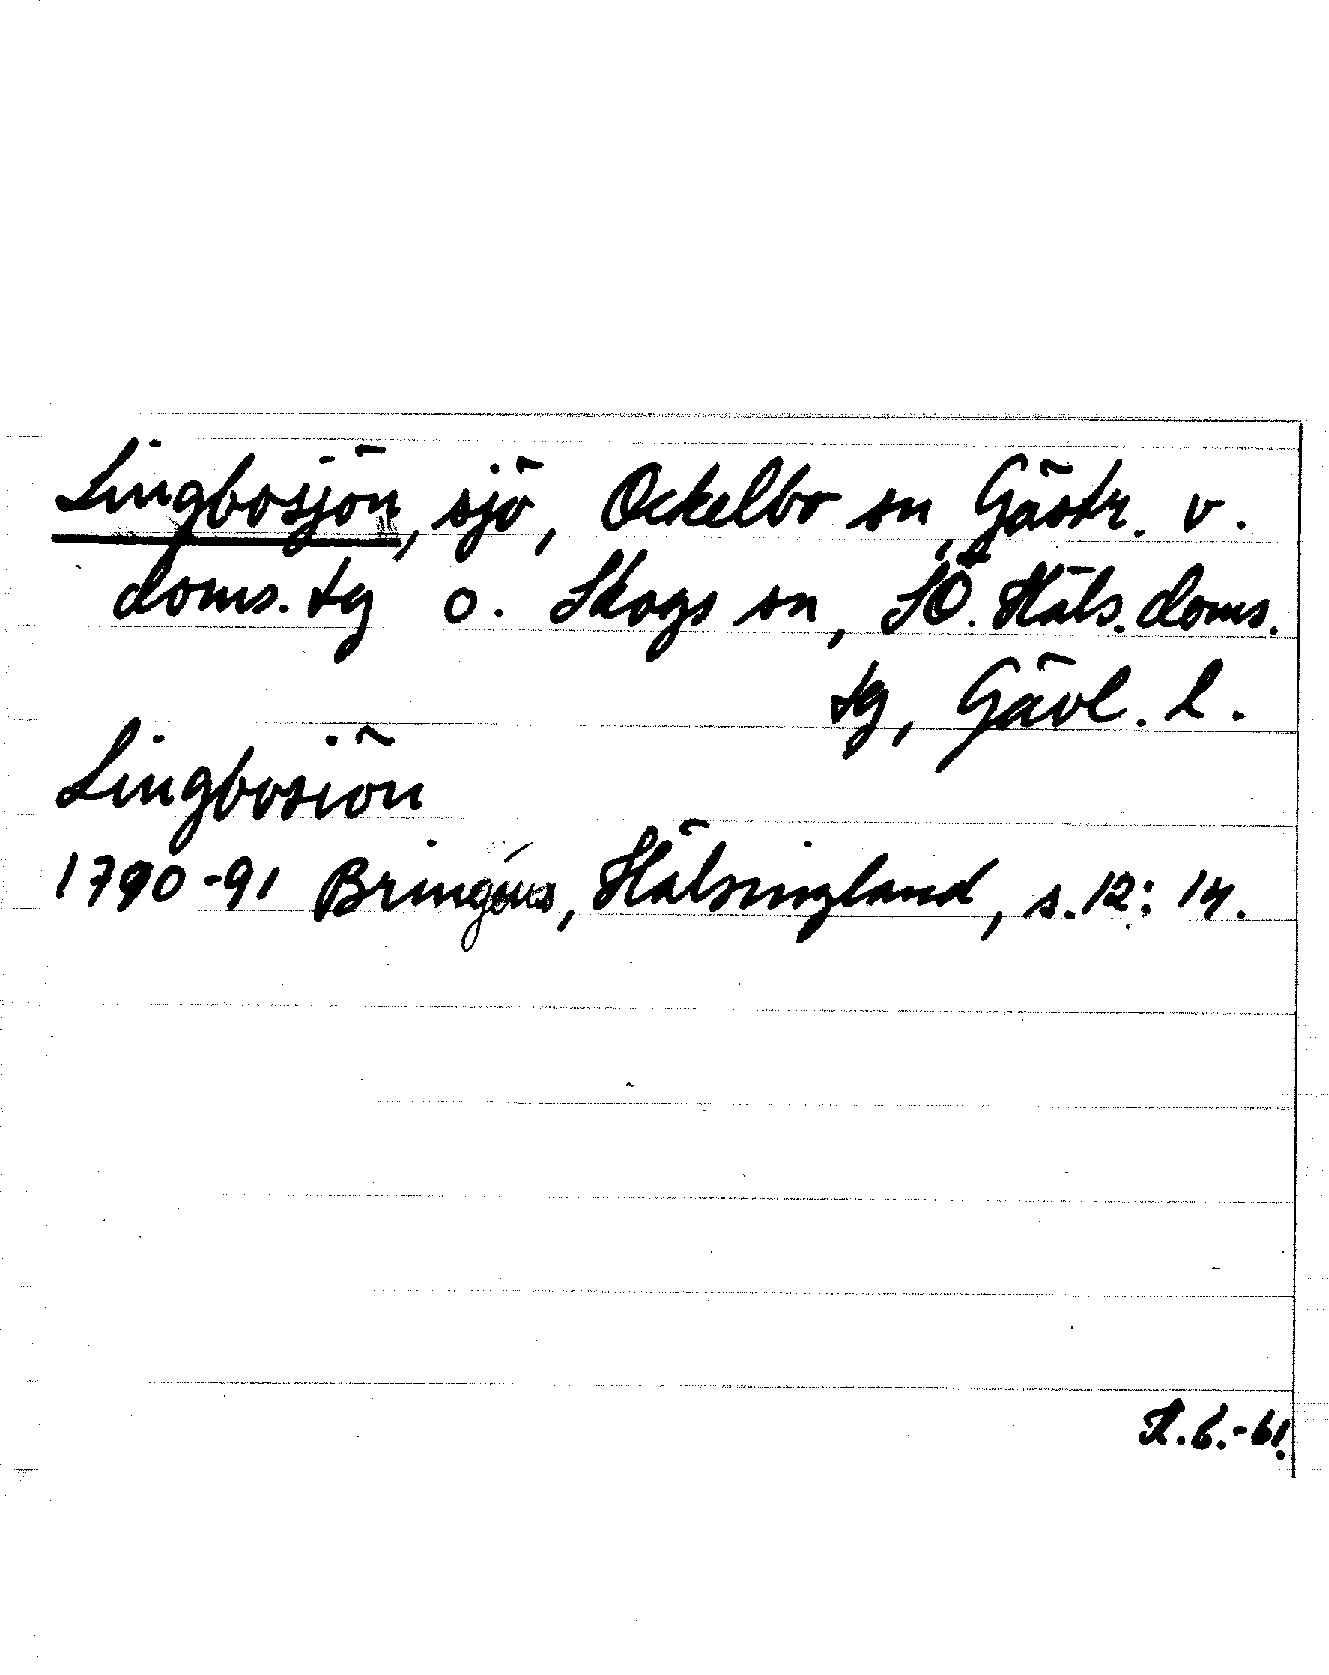 Lingbosjön, sjö, Ockelbo sn, Gästr. v.
doms. tg o. Skogs sn, SÖ. Häls. doms.
tg, Gävl. l.
Lingbosiön
1790-91 Bringéus, Hälsingland, s. 12: 14.